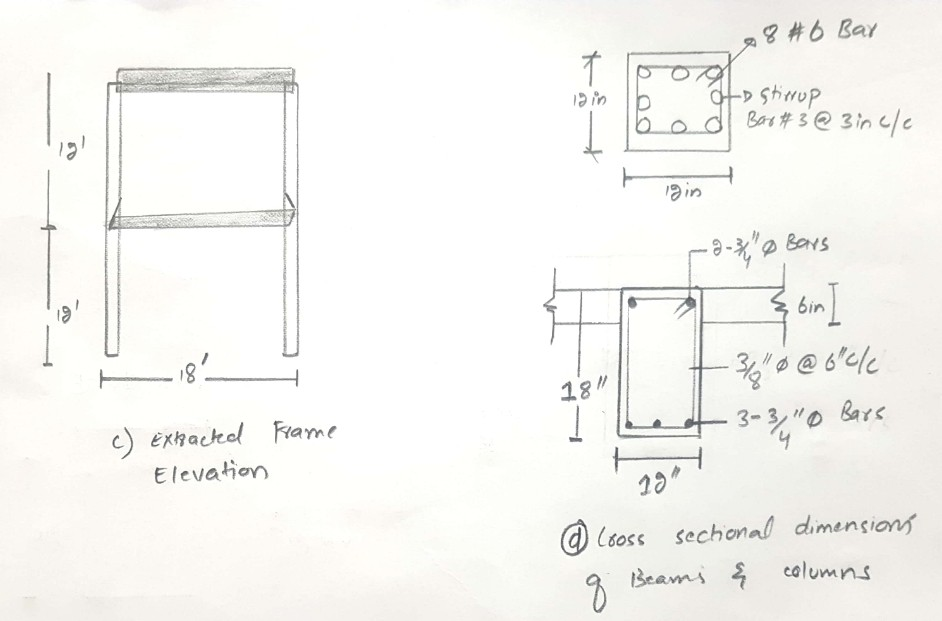 12'
12'
18'
c) Extracted Frame
Elevation
8 #6 Bar
12 in
Stirrup
Bar #3 @ 3in c/c
12in
2-3/4" ϕ Bars
6in
18"
3/8" ϕ @ 6" c/c
3-3/4" ϕ Bars
12"
d Cross sectional dimensions
of Beams & columns